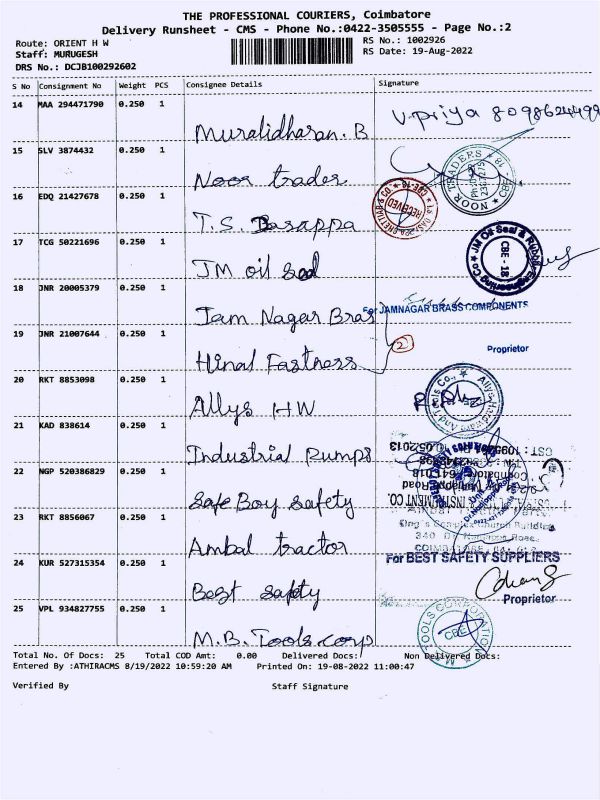 THE PROFESSIONAL COURIERS, Coimbatore
Delivery Runsheet - CMS - Phone No.:0422-3505555 - Page No.:2
Route: ORIENT H W
Staff: MURUGESH
DRS No.: DCJB100292602
RS No.: 1002926
RS Date: 19-Aug-2022
S No Consignment No Weight PCS Consignee Details Signature
14 MAA 294471790 0.250 1 Muralidharan. B V.priya 8098624499
15 SLV 3874432 0.250 1 Noor trader NOOR TRADERS CBE - 18
16 EDQ 21427678 0.250 1 T.S. Basappa RECEIVED CBE-18
17 TCG 50221696 0.250 1 JM oil seal JM Oil Seal & Rubber Engineering Co CBE - 18
18 JNR 20005379 0.250 1 Jam Nagar Bras For JAMNAGAR BRASS COMPONENTS
19 JNR 21007644 0.250 1 Hinal Fastness 2 Proprietor
20 RKT 8853098 0.250 1 Allys H W Ally's Hardware And Tools Co.,
21 KAD 838614 0.250 1 Industrial Pumps
22 NGP 520386829 0.250 1 Safe Boy Safety
23 RKT 8856067 0.250 1 Ambal tractor
King's Complex Church Building
24 KUR 527315354 0.250 1 Best safety For BEST SAFETY SUPPLIERS
Proprietor
25 VPL 934827755 0.250 1 M.B. Tools corp M TOOLS CORPORATION CBE
Total No. Of Docs: 25 Total COD Amt: 0.00 Delivered Docs: Non Delivered Docs:
Entered By :ATHIRACMS 8/19/2022 10:59:20 AM Printed On: 19-08-2022 11:00:47
Verified By Staff Signature